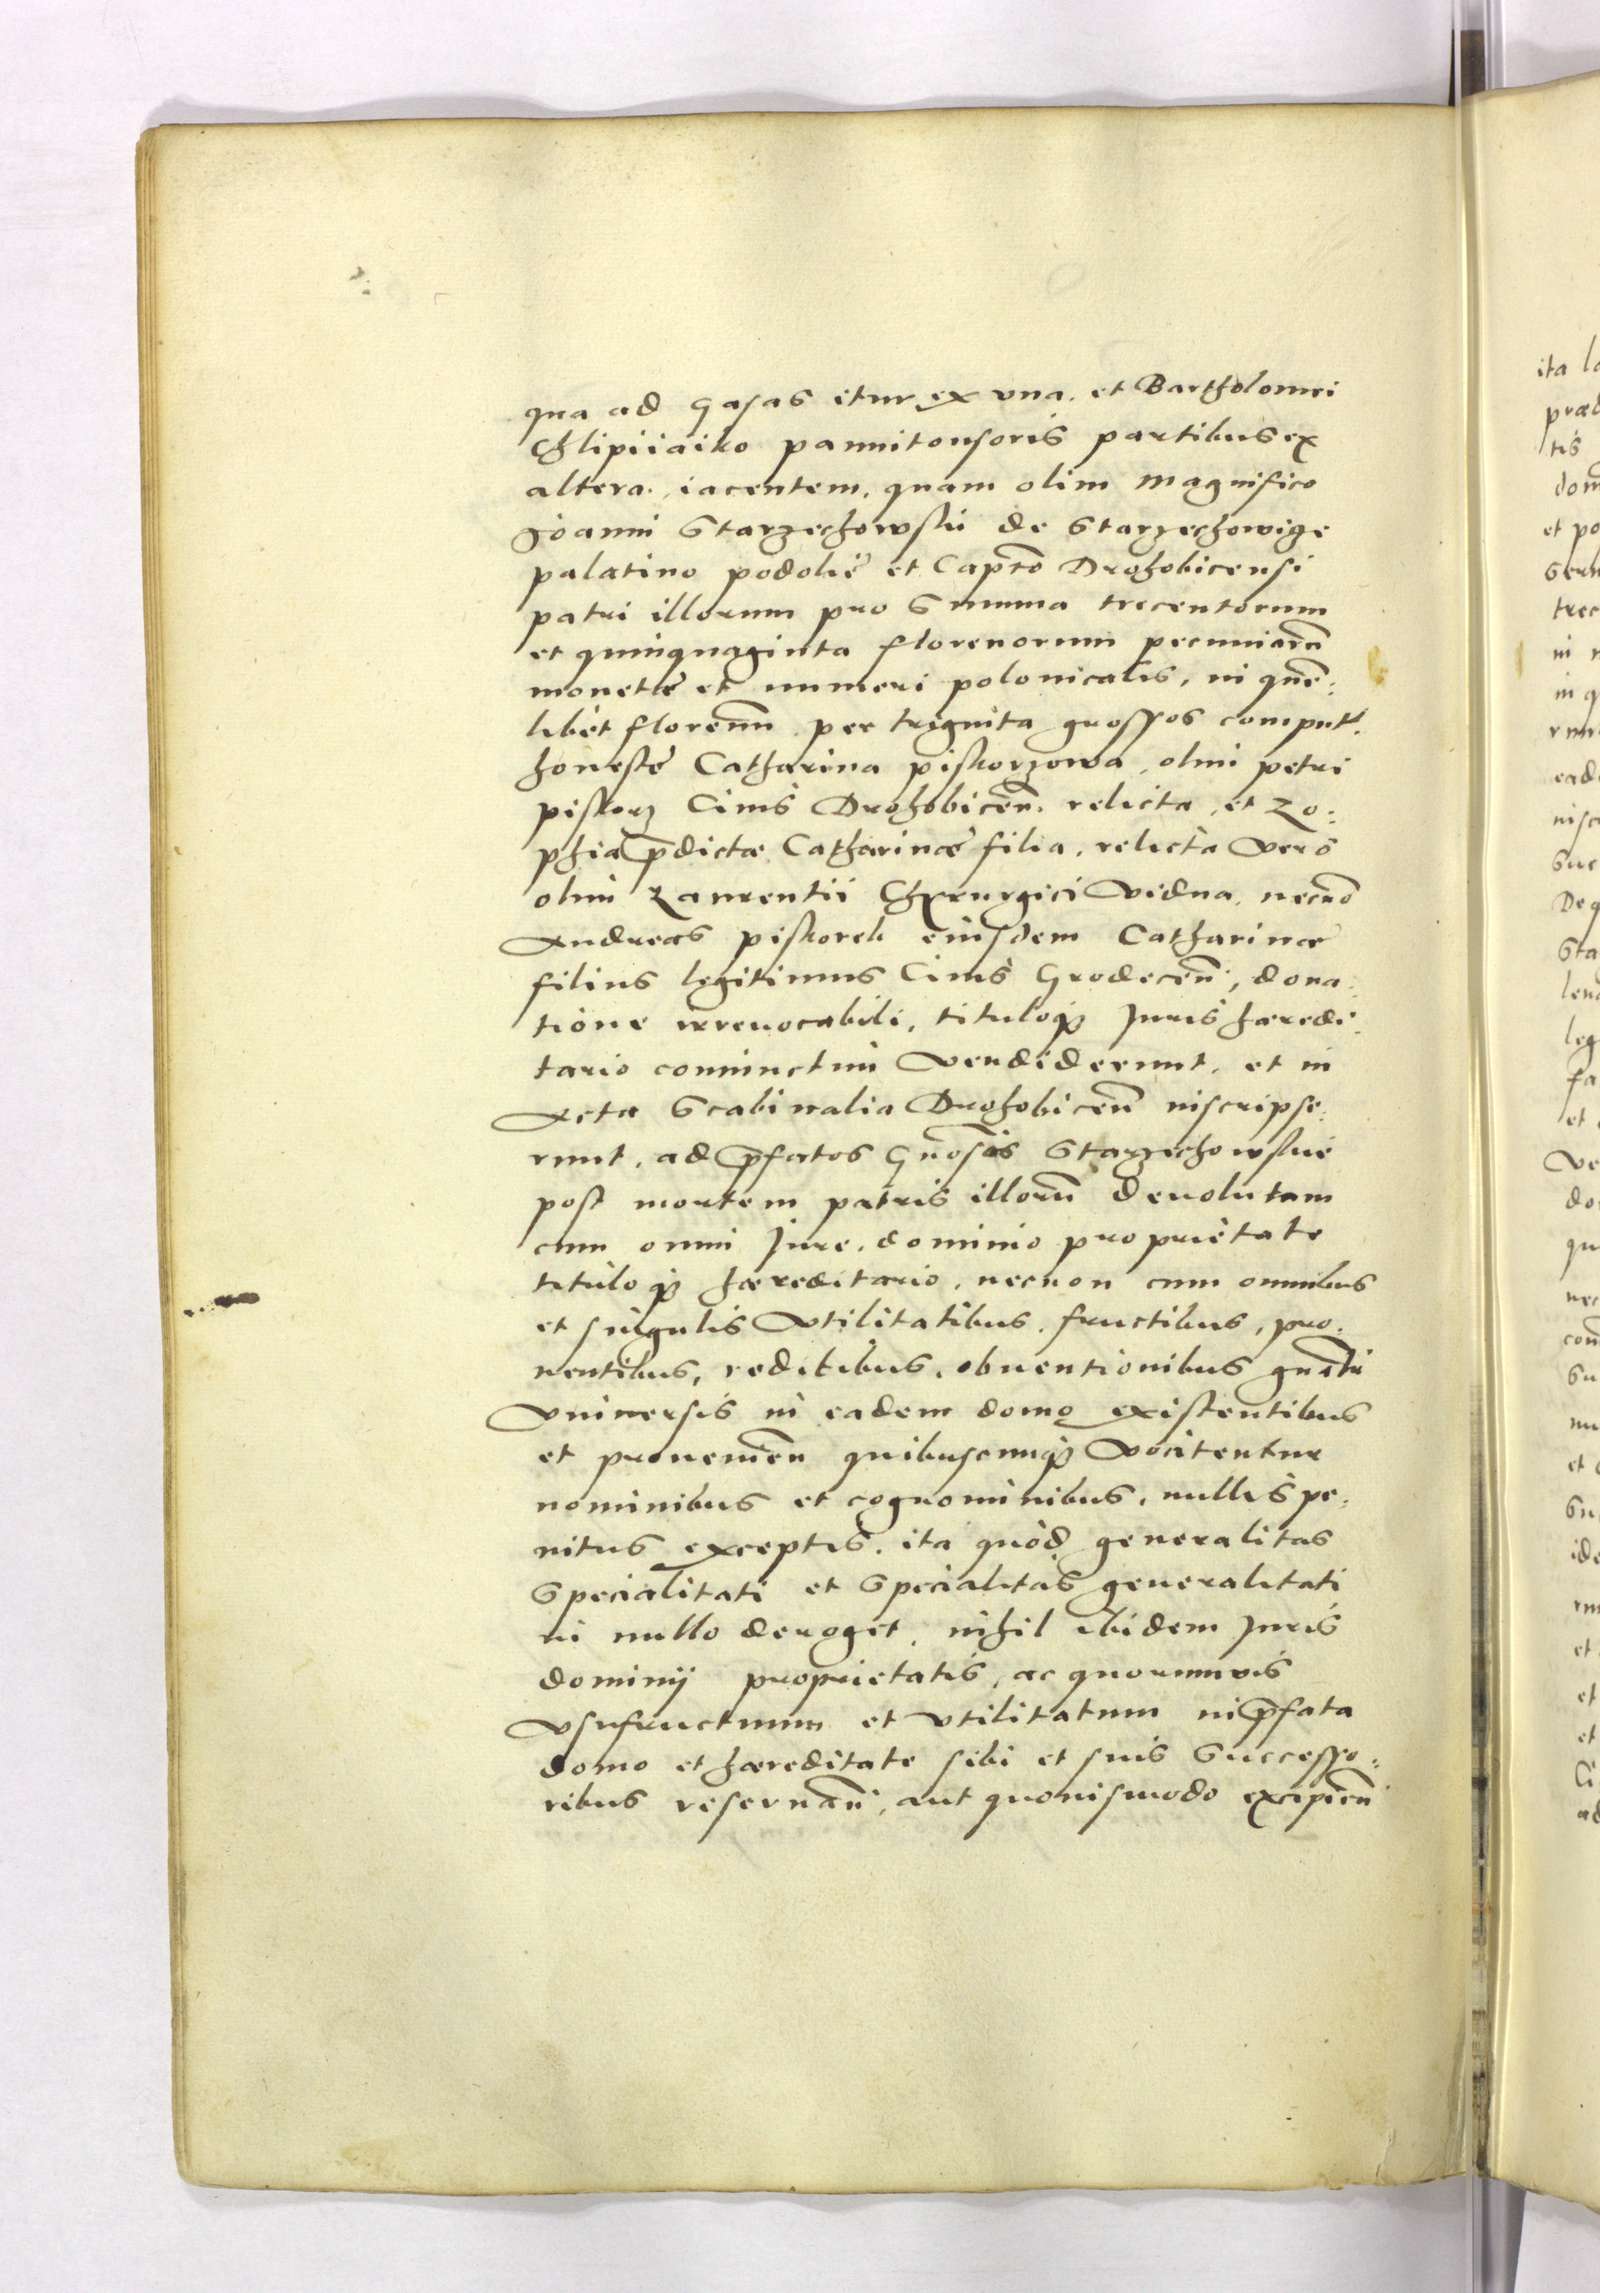 qua ad Gasas itur ex vna. et Bartholomei
Chlipiiaiko pannitonsoris partibus ex
altera. iacentem. quam olim Magnifico
Joanni Starzechowski de Starzechowize
palatino podolie et Capto Drohobicensi
patri illorum pro Summa trecentorum
et quinquaginta florenorum pecuniarũ
monete et numeri polonicalis, in quẽ:
libet florenum per triginta grossos comput.
honeste Catharina piskorzowa, olim petri
piskorz Ciuis Drohobiceñ. relicta, et Zo:
phia p̃dictæ Catharinæ filia, relicta Vero
olim Laurentii Chyrurgici Vidua, necnõ
Andreas piskorek eiusdem Catharinæ
filius legitimus Ciuis Grodeceñ, dona:
tione irreuocabili, tituloq3 Juris hæredi:
tario coniunctim Vendiderunt, et in
Acta Scabinalia Drohobiceñ inscripse:
runt, ad p̃fatos Gñosos Starzechowskie
post mortem patris illorũ deuolutam
cum omni Jure, dominio proprietate
tituloq3 hæreditario, necnon cum omnibus
et singulis Vtilitatibus, fructibus, pro:
uentibus, reditibus, obuentionibus gñatr
Vniuersis in eadem domo existentibus
et prouenieñ quibuscumq3 Vocitentur
nominibus et cognominibus, nullis pe:
nitus exceptis. ita quod generalitas
Specialitati et Specialitas generalitati
in nullo deroget, nihil ibidem Juris
dominij proprietatis, ac quorumuis
Vsufructuum et Vtilitatum in p̃fata
domo et hæreditate sibi et suis Successo:
ribus reseruañ, aut quouismodo excipieñ